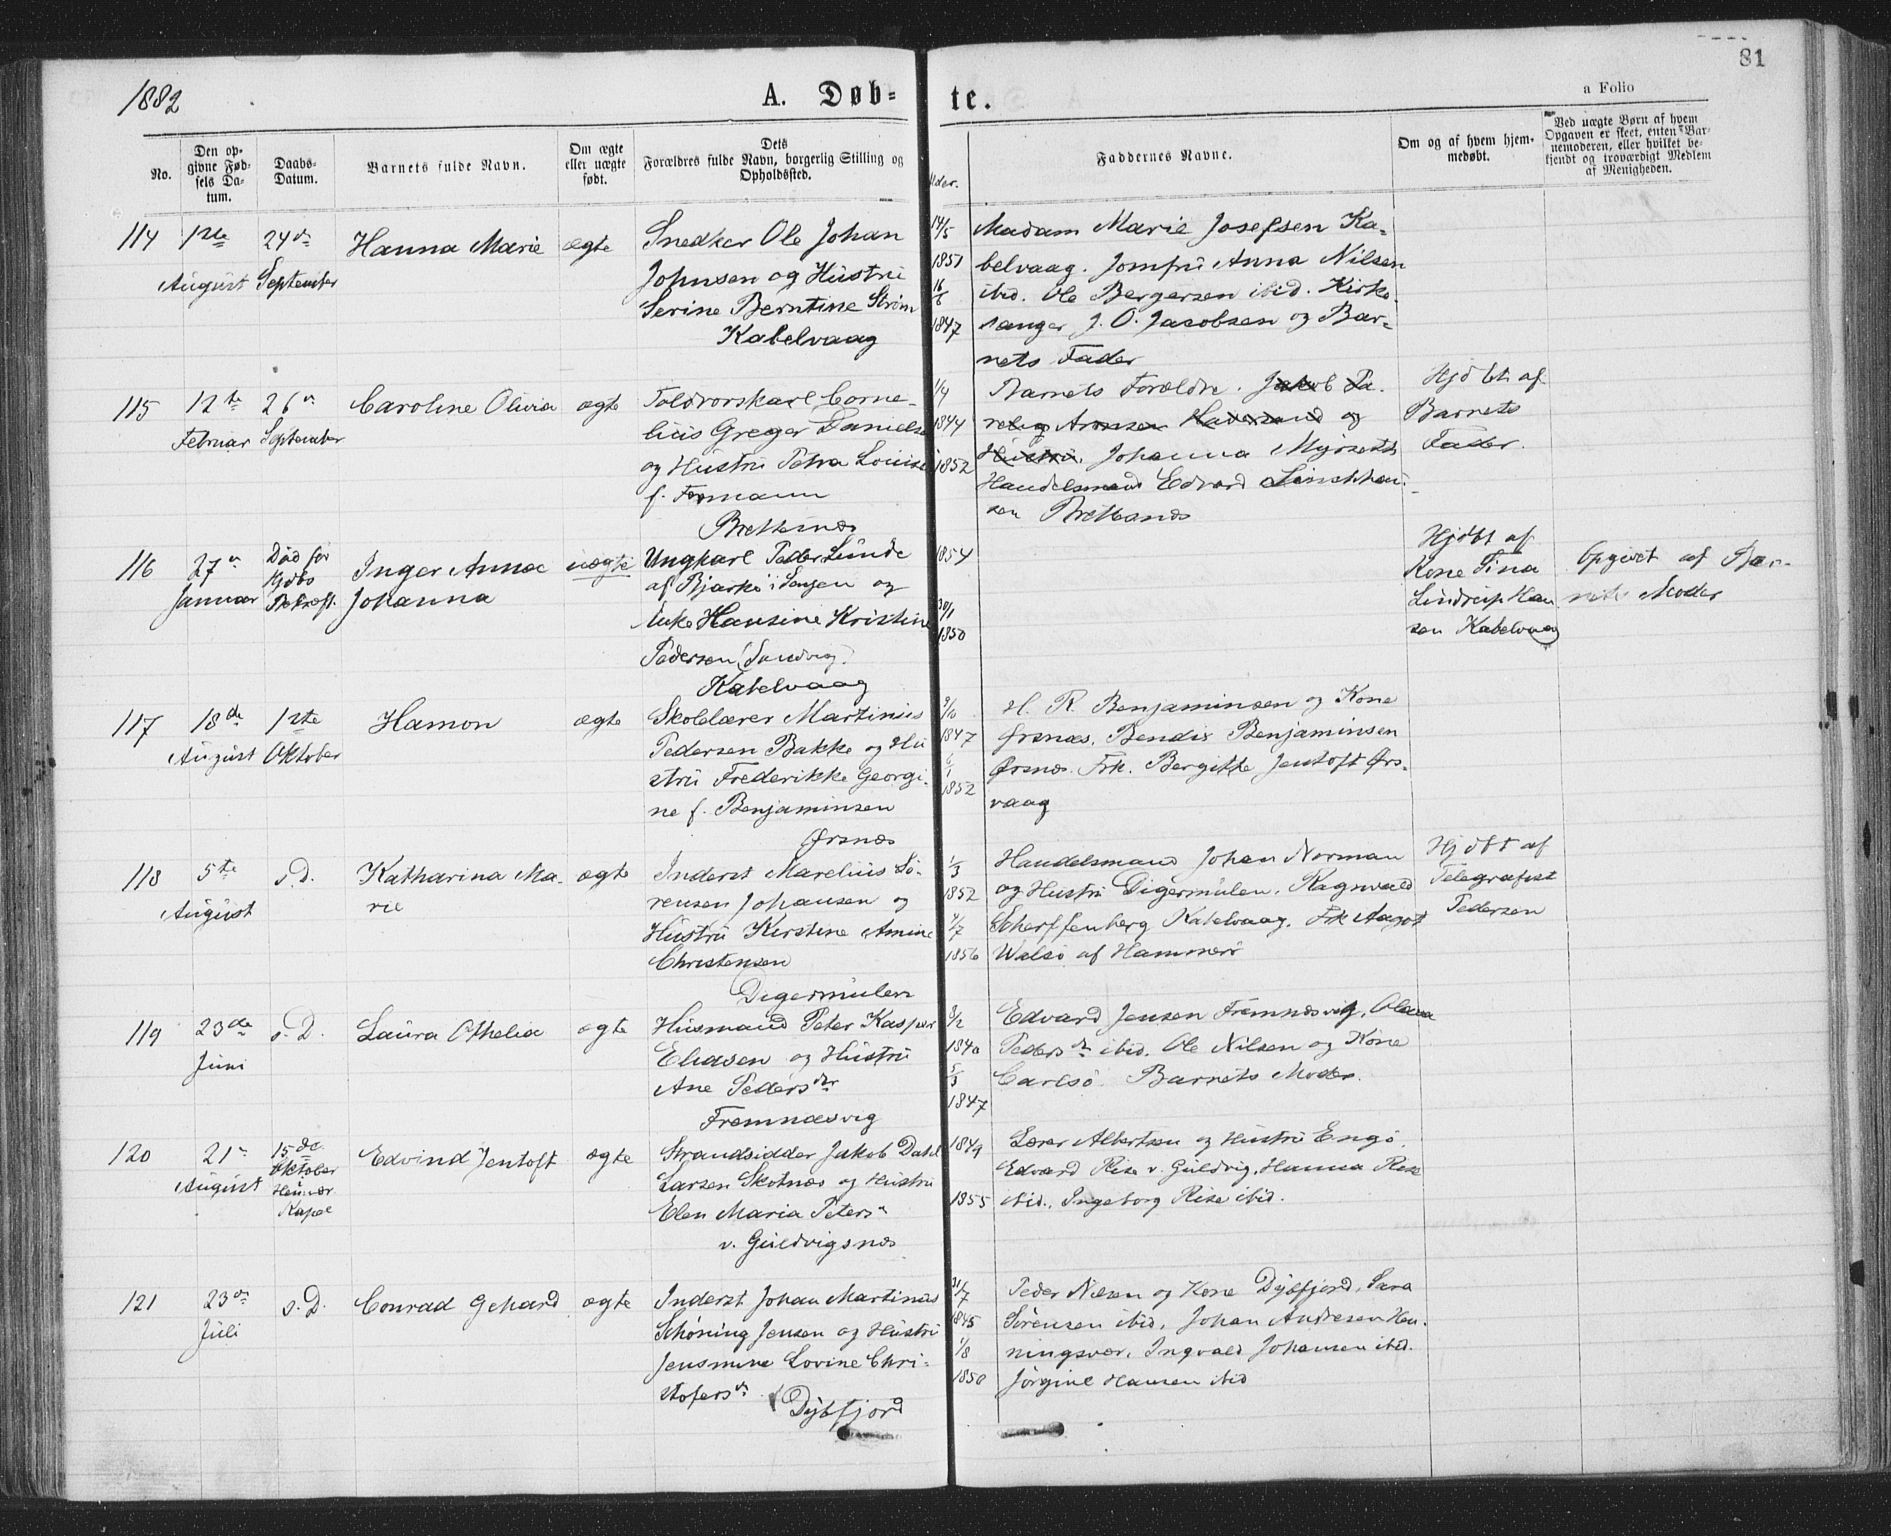 1882
A. Døb-
te.
81
a Folio
No.
Den op-
givne Fød-
sels Da-
tum.
Daabs-
Datum.
Barnets fulde Navn.
Om ægte
eller uægte
født.
Dets
Forældres fulde Navn, borgerlig Stilling og
Opholdssted.
Alder.
Faddernes Navne.
Om og af hvem hjem-
medøbt.
Ved uægte Børn af hvem
Opgaven er skeet, enten Bar-
nemoderen, eller hvilket be-
kjendt og troværdigt Medlem
af Menigheden.
114
1ste
August
24de
September
Hanna Marie
ægte
Snedker Ole Johan
Johnsen og Hustru
Serine Berntine Strøm
Kabelvaag
14/5
1851
16/6
1847
Madam Marie Josefsen Ka-
belvaag. Jomfru Anna Nilsen
ibid. Ole Bergersen ibid. Kirke-
sanger J. O. Jacobsen og Bar-
nets Fader
115
12te
Februar
26de
September
Caroline Olivia
ægte
Toldrorskarl Corne-
lius Greger Daniels
og Hustru Petra Louise
f. Formann
Brettesnæs
1/4
1844
1852
Barnets Forældre. Jakob Pa-
relig Aronsen og
Hustru. Johanna
Handelsmand Edvard
sen Brettesnæs
Hjdbt af
Barnets
Fader.
116
27de
Januar
Død før
Hjdbs
Bekræft.
Inger Anna
Johanna
uægte
Ungkarl Peder Lunde
af Bjarkø i Senjen og
Enke Hansine Kristine
Pedersen (Sandvig)
Kabelvaag
1854
30/1
1850
Hjdbt af
Kone Tina
Lindrup Han
sen Kabelvaag
Opgivet af Bar-
nets Moder
117
18de
August
1ste
Oktober
Hamon
ægte
Skolelærer Martinus
Pedersen Bakke og Hu
stru Frederikke Georgi-
ne f. Benjaminsen
Ørsnæs
9/10
1847
6/1
1852
H. R. Benjaminsen og Kone
Ørsnæs. Bendix Benjaminsen
Ørsnæs. Frk. Bergitte Jentoft Ørs-
vaag
118
5te
August
s.D.
Katharina Ma-
rie
ægte
Inderst Marelius Sø-
rensen Johansen og
Hustru Kirstine Amine
Christensen
Digermulen
1/3
1852
4/7
1856
Handelsmand Johan Norman
og Hustru Digermulen. Ragnvald
Scherffenberg Kabelvaag. Frk Aagot
Walsø af Hammerø
Hjdbt af
Telegrafist
Pedersen
119
23de
Juni
s.D.
Laura Othelia
ægte
Husmand Peter Kasper
Eliasen og Hustru
Ane Pedersdtr
Fremnæsvig
8/2
1840
5/3
1847
Edvard Jensen Fremnæsvig, Olava
Pedersdr ibid. Ole Nilsen og Kone
Carlsø. Barnets Moder.
120
21de
August
15de
Oktober
Kapel
Edvind Jentoft
ægte
Strandsidder Jakob Datel
Larsen Skotnæs og Hustru
Elen Maria Petersdr
v. Guldvigsnæs
1849
1855
Lærer Albertsen og Hustru Engø.
Edvard Rise v. Guldvig, Hanna Rise
ibid., Ingeborg Rise ibid.
121
23de
Juli
s.D.
Conrad Gehard
ægte
Inderst Johan Martinus
Schøning Jensen og Hustru
Jensmine Lovine Chri-
stofersdr
Dybfjord
31/7
1845
1/8
1850
Peder Nilsen og Kone Dybfjord, Sara
Sørensen ibid. Johan Andresen Hen-
ningsvær. Ingvald Johansen ibid.
Jørgine Hansen ibid